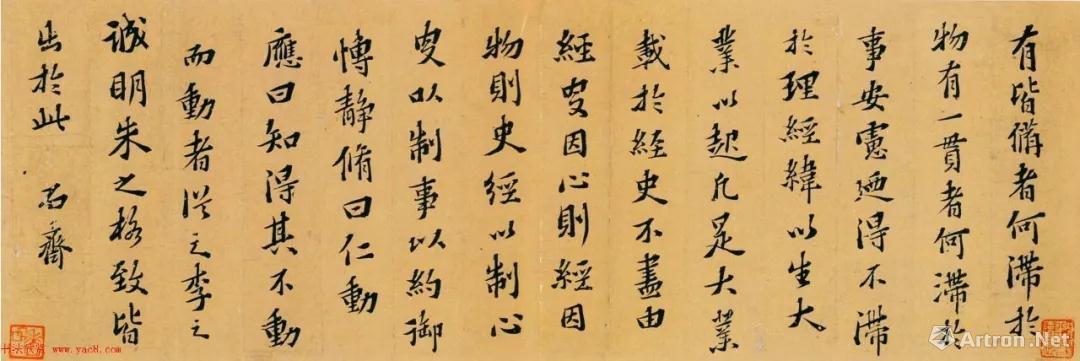 有皆備者何滯於
物有一貫者何滯於
事安慮迺得不滯
於理經緯以生大
業以起凡是大業
載於經史不盡由
經史因心則經因
物則史經以制心
史以制事以約御
博靜脩曰仁動
應曰知得其不動
而動者從之李之
誠明朱之格致皆
出於此
齋
www.yac8.com
Artron.Net